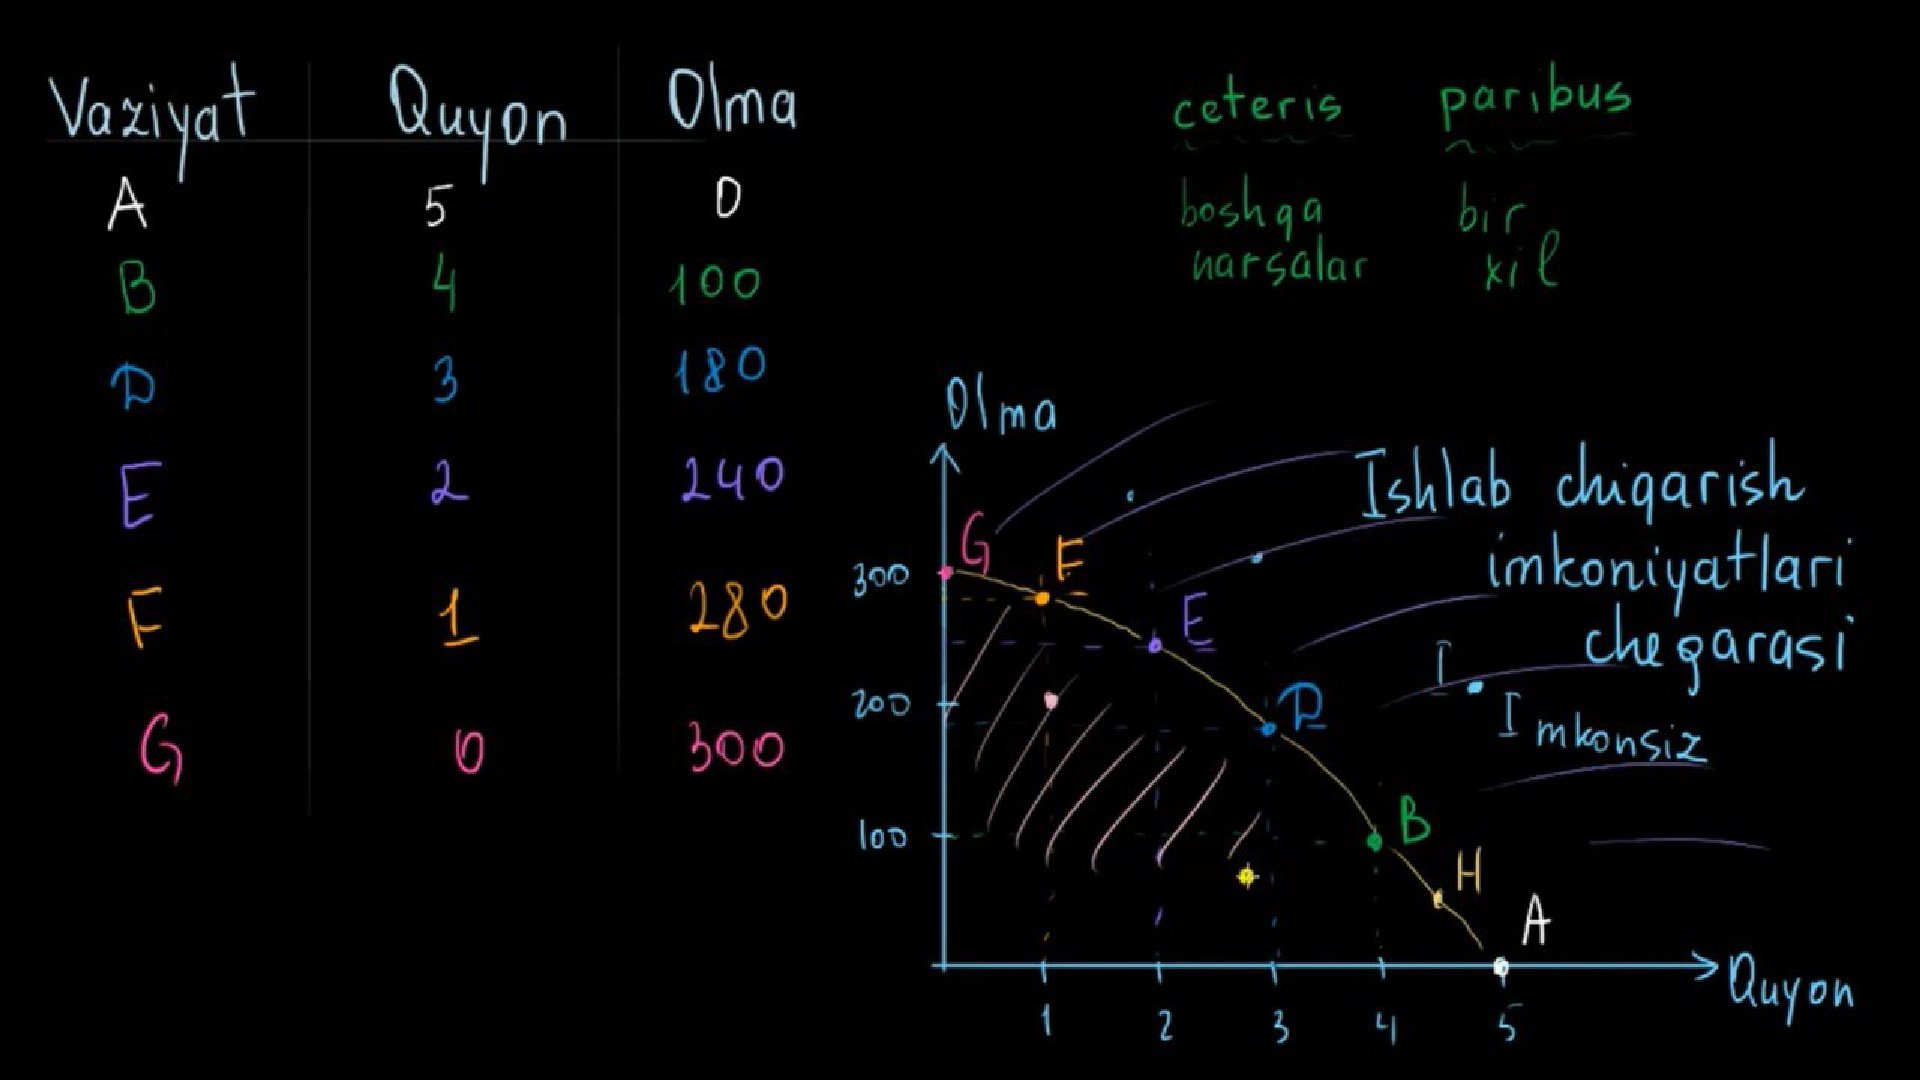 Vaziyat Quyon Olma
A 5 0
B 4 100
D 3 180
E 2 240
F 1 280
G 0 300
ceteris paribus
boshqa bir
narsalar xil
Olma
Ishlab chiqarish
imkoniyatlari
chegarasi
G
F
300
E
I
200
D
Imkonsiz
100
B
H
A
Quyon
1 2 3 4 5